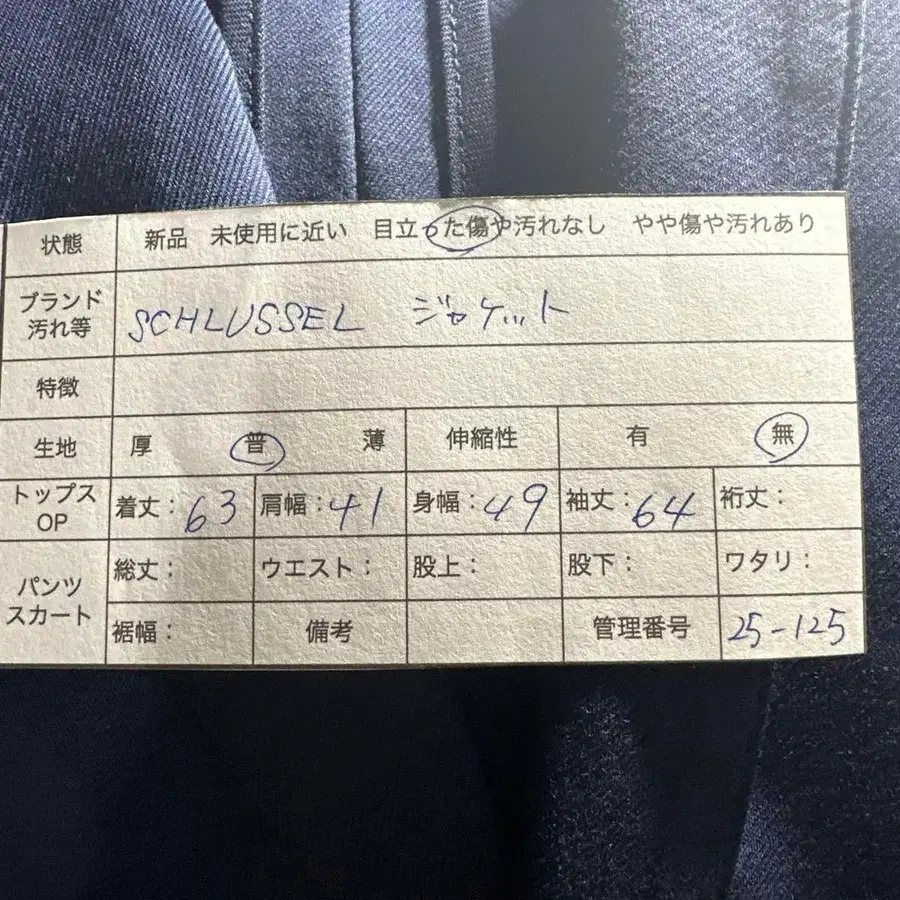 状態 新品 未使用に近い 目立った傷や汚れなし やや傷や汚れあり
ブランド 汚れ等 SCHLUSSEL ジャケット
特徴
生地 厚 普 薄 伸縮性 有 無
トップス OP 着丈：63 肩幅：41 身幅：49 袖丈：64 裄丈：
パンツ スカート 総丈： ウエスト： 股上： 股下： ワタリ：
裾幅： 備考 管理番号 25-125